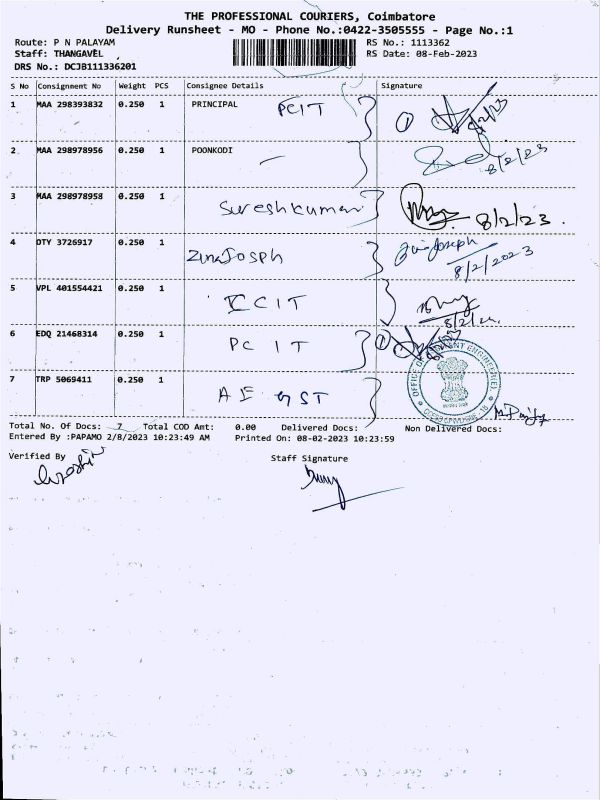 THE PROFESSIONAL COURIERS, Coimbatore
Delivery Runsheet - MO - Phone No.:0422-3505555 - Page No.:1
Route: P N PALAYAM
RS No.: 1113362
Staff: THANGAVEL
RS Date: 08-Feb-2023
DRS No.: DCJB111336201
S No Consignment No Weight PCS Consignee Details Signature
1 MAA 298393832 0.250 1 PRINCIPAL PCIT 1
2 MAA 298978956 0.250 1 POONKODI 8/2/23
3 MAA 298978958 0.250 1 Sureshkumar 8/2/23.
4 DTY 3726917 0.250 1 ZinaJosph 8/2/2023
5 VPL 401554421 0.250 1 ICCIT
6 EDQ 21468314 0.250 1 PC IT 1
7 TRP 5069411 0.250 1
Total No. Of Docs: 7 Total COD Amt: 0.00 Delivered Docs: Non Delivered Docs:
Entered By :PAPAMO 2/8/2023 10:23:49 AM Printed On: 08-02-2023 10:23:59
Verified By Staff Signature